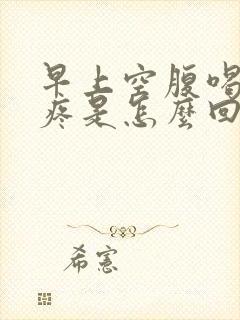 早上空腹喝
疼是怎麼回
希憲